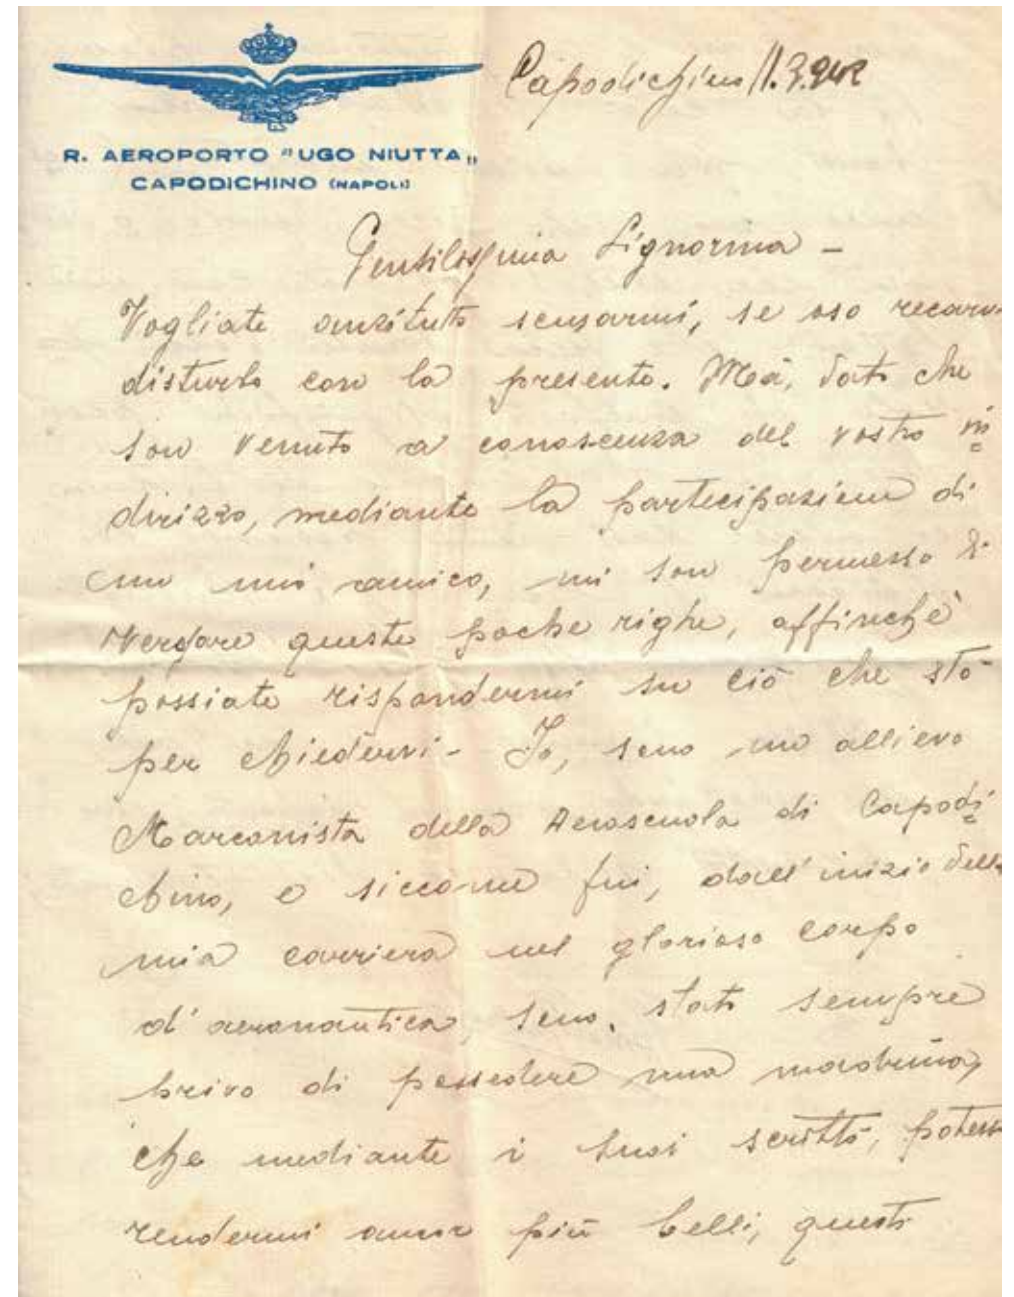 R. AEROPORTO "UGO NIUTTA„
CAPODICHINO (NAPOLI)
Capodichino 11.3.942
Gentilissima Signorina –
Vogliate anzitutto scusarmi, se oso recarvi
disturbo con la presente. Mà, dato che
son venuto a conoscenza del vostro in
dirizzo, mediante la partecipazione di
un mio amico, mi son permesso di
vergare queste poche righe, affinchè
possiate rispondermi su ciò che stò
per chiedervi – Io, sono un allievo
Marconista della Aeroscuola di Capodi
chino, e siccome fui, dall'inizio della
mia carriera nel glorioso corpo
d'aeronautica, sono stato sempre
privo di possedere una madrina,
che mediante i suoi scritti, potesse
rendermi ancor più belli, questi